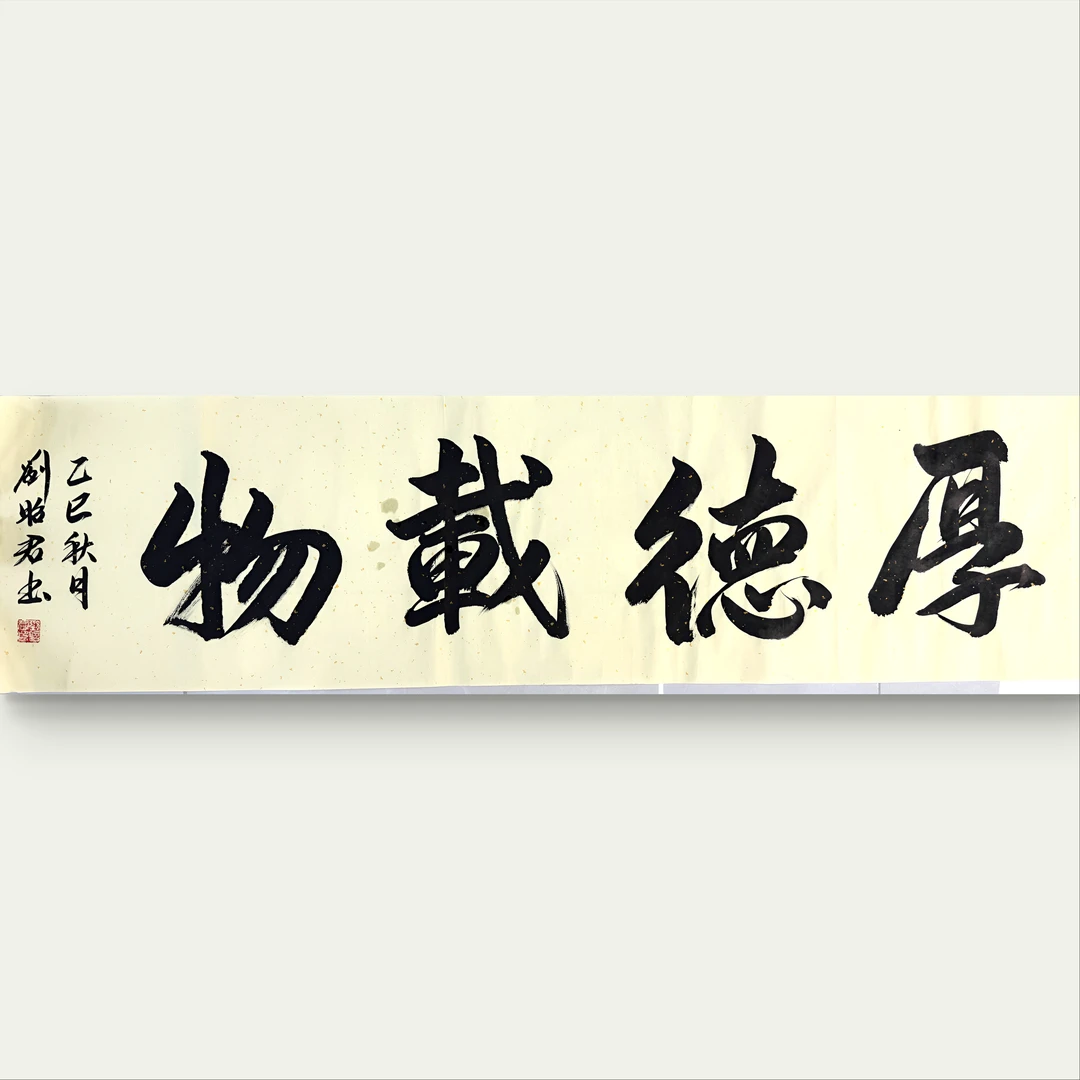 厚德載物
乙巳秋月
劉昭君书